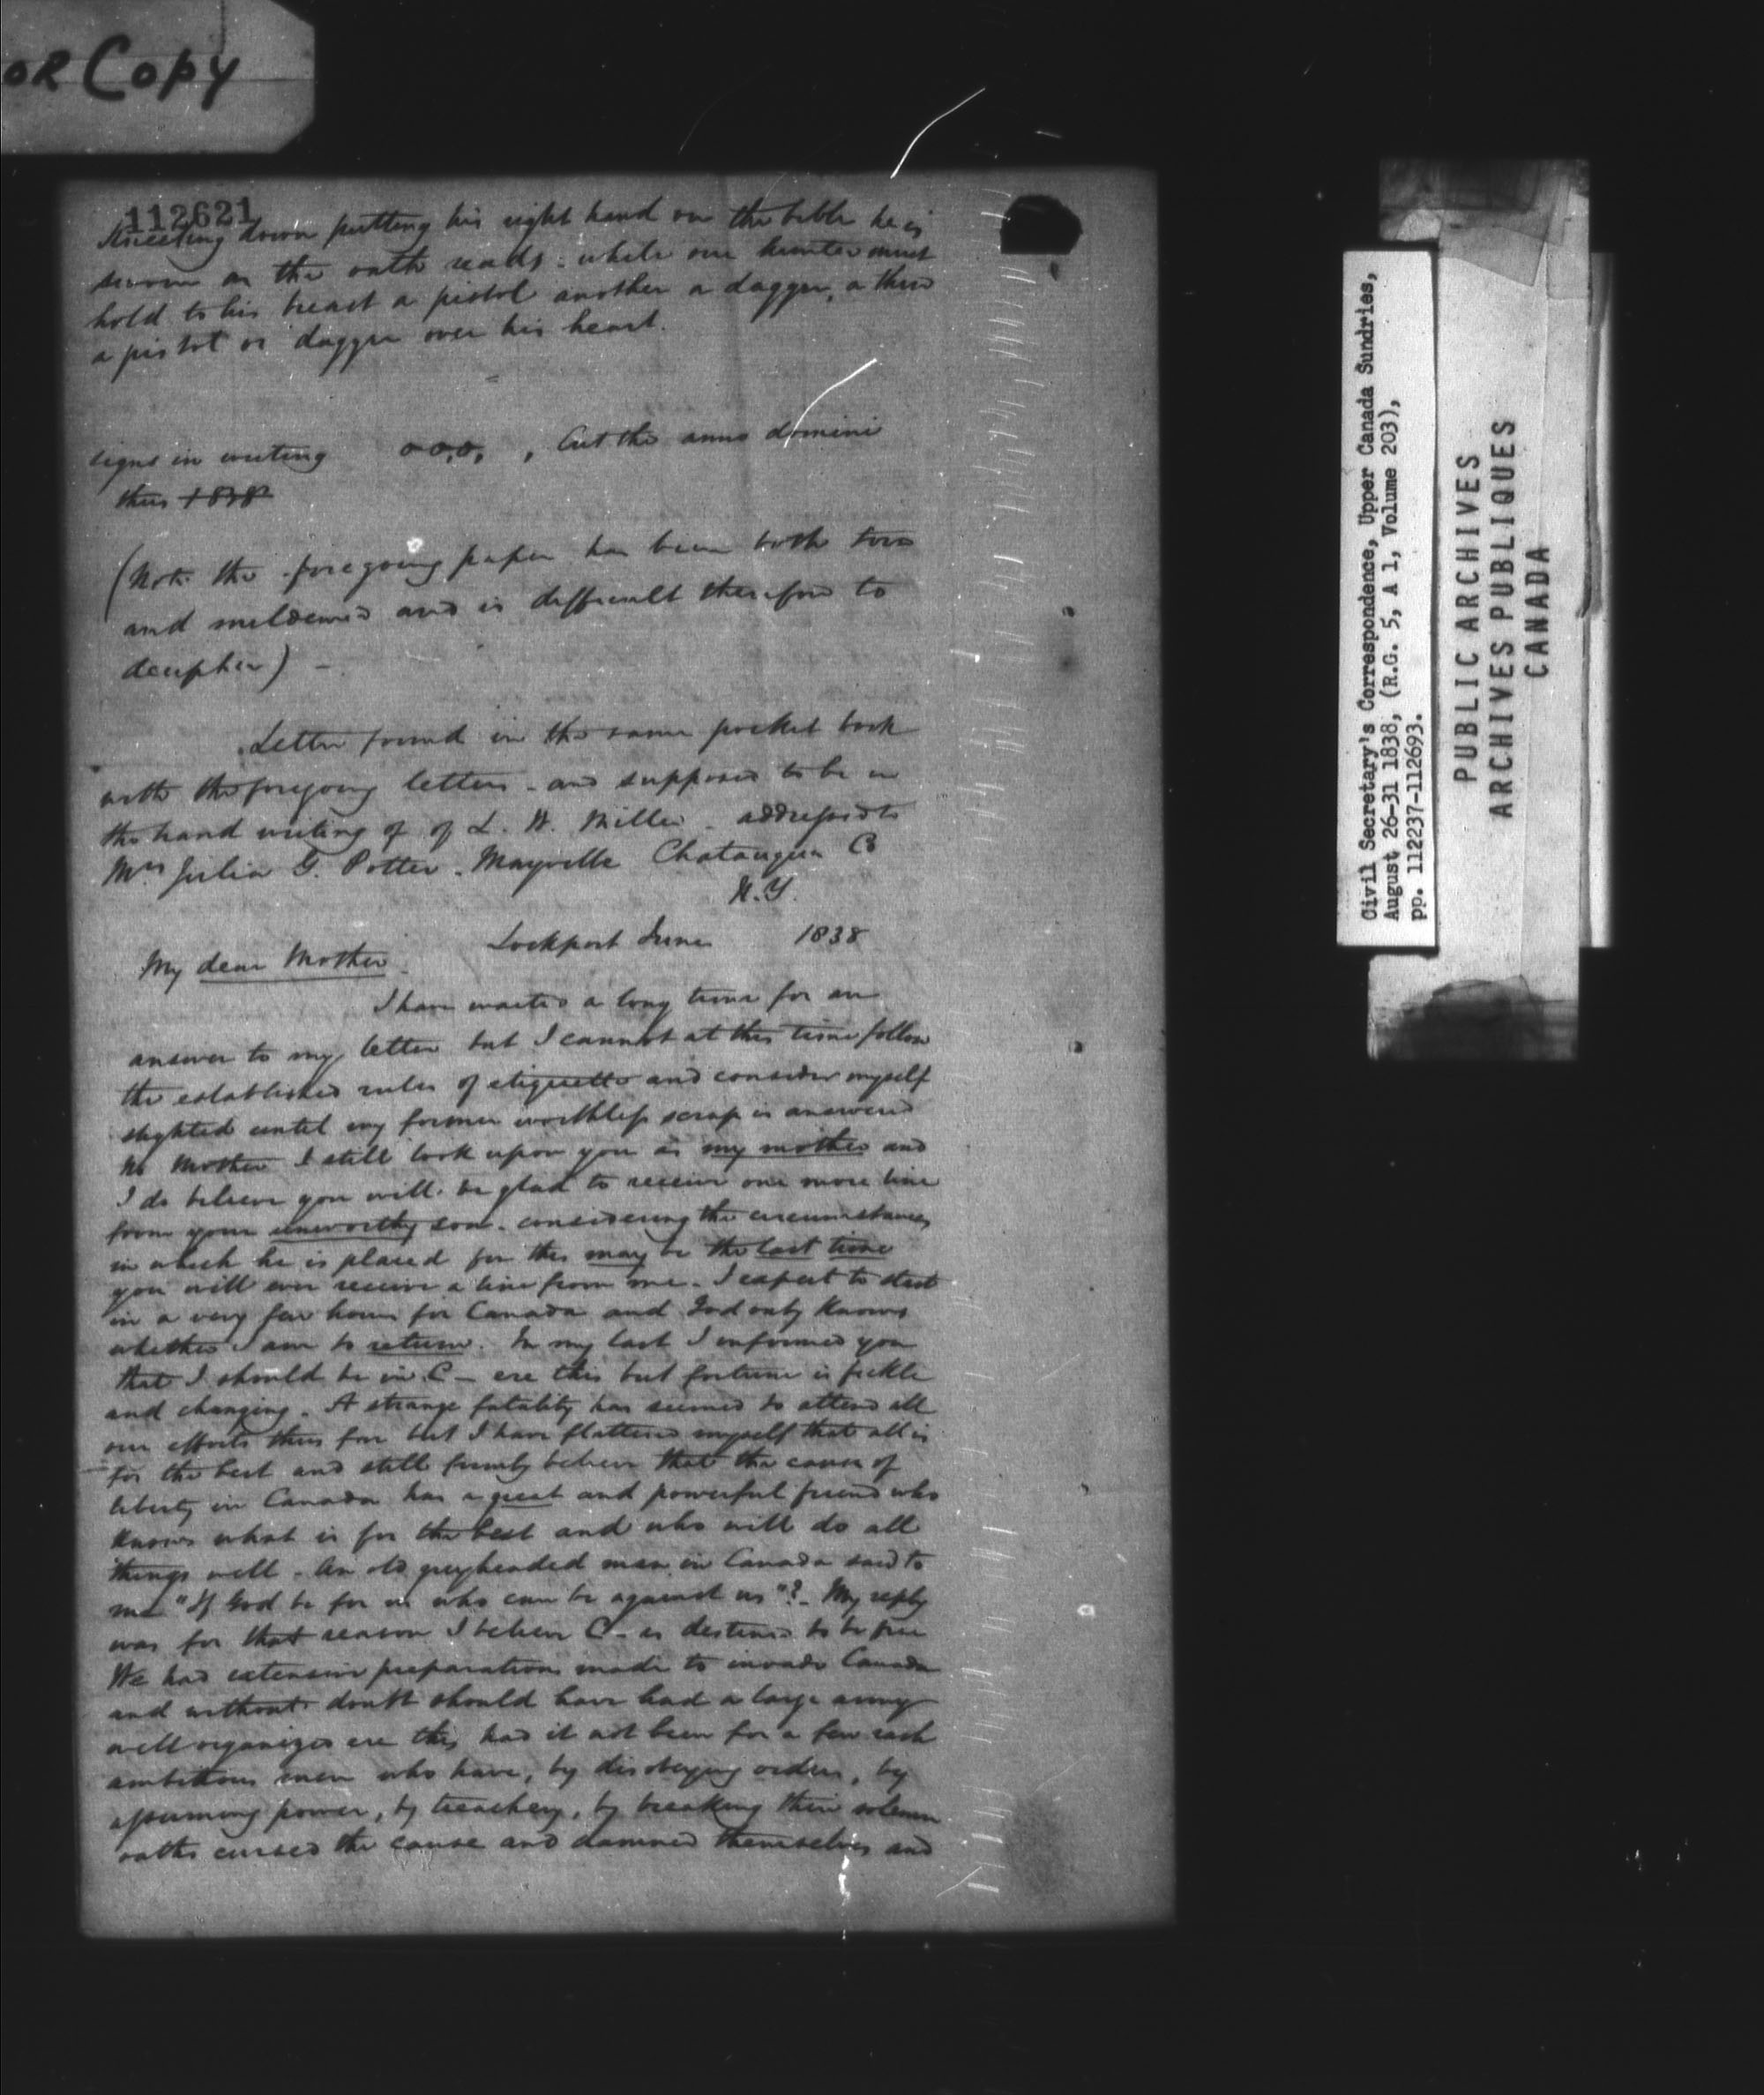 OR Copy
112621
Kneeling down putting his right hand on the bible he is
sworn as the oath reads: while one hunter must
hold to his breast a pistol another a dagger, a third
a pistol or dagger over his heart.
signs in writing , Cut the anno domini
thus 1838
(Note the foregoing paper has been both torn
and mildewed and is difficult therefore to
decipher) -
Letter found in the same pocket book
with the foregoing letters - and supposed to be in
the hand writing of of L. W. Miller - addressed to
Mrs Julia G. Potter - Mayville Chatauque Co
N.Y.
Lockport June 1838
My dear Mother.
I have waited a long time for an
answer to my letter but I cannot at this time follow
the established rules of etiquette and consider myself
slighted until my former worthless scrap is answered
No Mother I still look upon you as my mother and
I do believe you will be glad to receive one more line
from your unworthy son - considering the circumstances
in which he is placed for this may be the last time
you will ever receive a line from me - I expect to start
in a very few hours for Canada and God only knows
whether I am to return. In my last I informed you
that I should be in C - ere this but fortune is fickle
and changing. A strange fatality has seemed to attend all
our efforts thus far but I have flattered myself that all is
for the best and still firmly believe that the cause of
liberty in Canada has a great and powerful friend who
knows what is for the best and who will do all
things well - An old greyheaded man in Canada said to
me "If God be for us who can be against us"? - My reply
was for that reason I believe C - is destined to be free
We had extensive preparations made to invade Canada
and without doubt should have had a large army
well organized ere this had it not been for a few rash
ambitious men who have, by disobeying orders, by
assuming power, by treachery, by breaking their solemn
oaths cursed the cause and damned themselves and
Civil Secretary's Correspondence, Upper Canada Sundries,
August 26-31 1838, (R.G. 5, A 1, Volume 203),
pp. 112237-112693.
PUBLIC ARCHIVES
ARCHIVES PUBLIQUES
CANADA